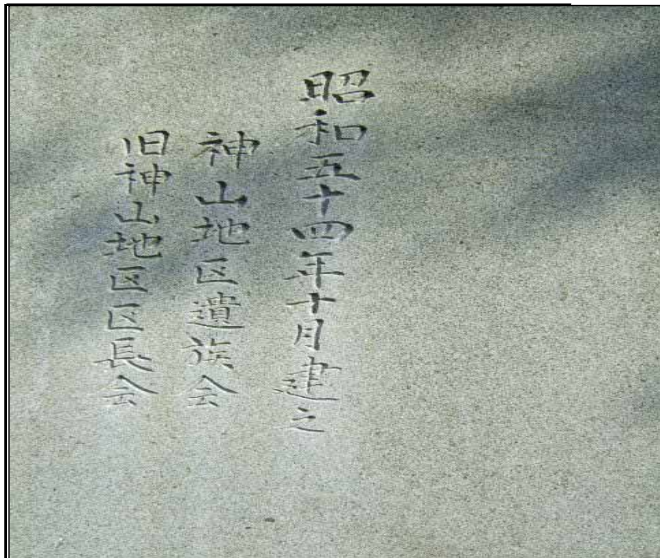 昭和五十四年十月建之
神山地区遺族会
旧神山地区区長会